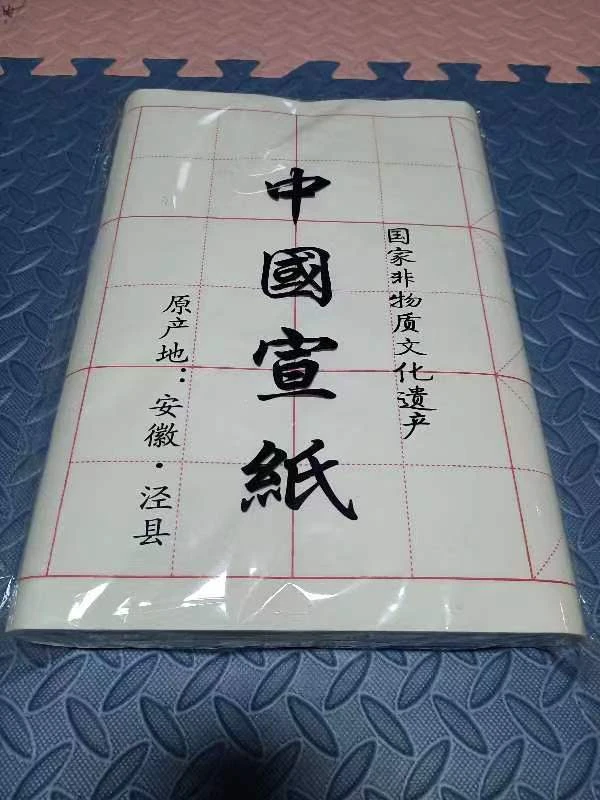 国家非物质文化遗产
中國宣紙
原产地：安徽·泾县